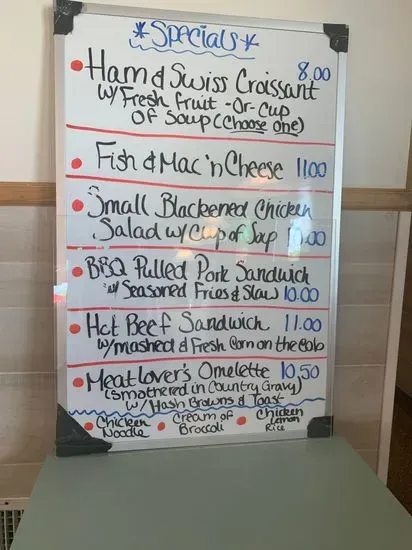 *Specials*
Ham & Swiss Croissant 8.00
w/ Fresh Fruit -Or- Cup
Of Soup (Choose One)
Fish & Mac 'n Cheese 11.00
Small Blackened Chicken
Salad w/ Cup of Soup
BBQ Pulled Pork Sandwich
w/ Seasoned Fries & Slaw 10.00
Hot Beef Sandwich 11.00
w/ mashed & Fresh Corn on the Cob
Meat Lover's Omelette 10.50
(Smothered in Country Gravy)
w/ Hash Browns & Toast
Chicken Noodle
Cream of Broccoli
Chicken Lemon Rice